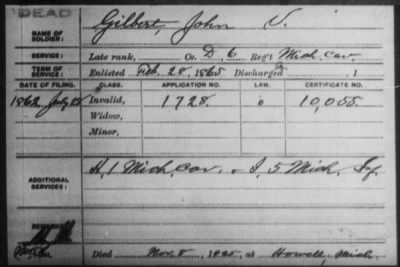 DEAD
NAME OF SOLDIER: Gilbert, John V.
SERVICE: Late rank, Co. D, 6 Reg't Mich. Cav.
TERM OF SERVICE: Enlisted Feb. 28, 1865 Discharged , 1
DATE OF FILING. CLASS. APPLICATION NO. LAW. CERTIFICATE NO.
1862 July 28 Invalid, 1728 o 10,055
Widow,
Minor,
ADDITIONAL SERVICES: H, 1 Mich. Cav. I, 5 Mich. Inf.
REMARKS:
Died Nov. 8, 1925, at Howell, Mich.